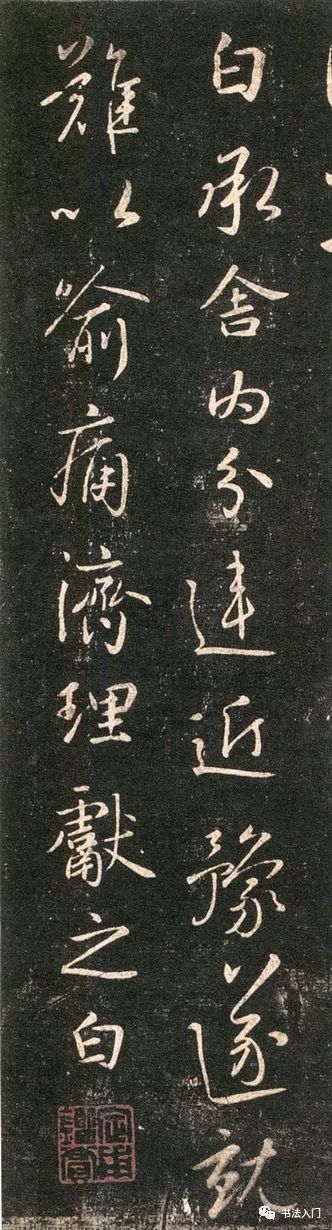 白承舍内分違近豫遂就
難以喻痛濟理獻之白
书法入门